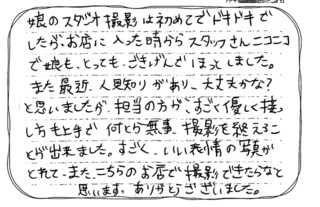 娘のスタジオ撮影は初めてでドキドキで
したが、お店に入った時からスタッフさんニコニコ
で娘も、とっても、ごきげんでほっとしました。
また最近、人見知りがあり、大丈夫かな？
と思いましたが、担当の方が、すごく優しく接
し方も上手で何とか無事、撮影を終えるこ
とが出来ました。すごく、いい表情の写真が
とれて、また、こちらのお店で撮影できたらなと
思います。ありがとうございました。